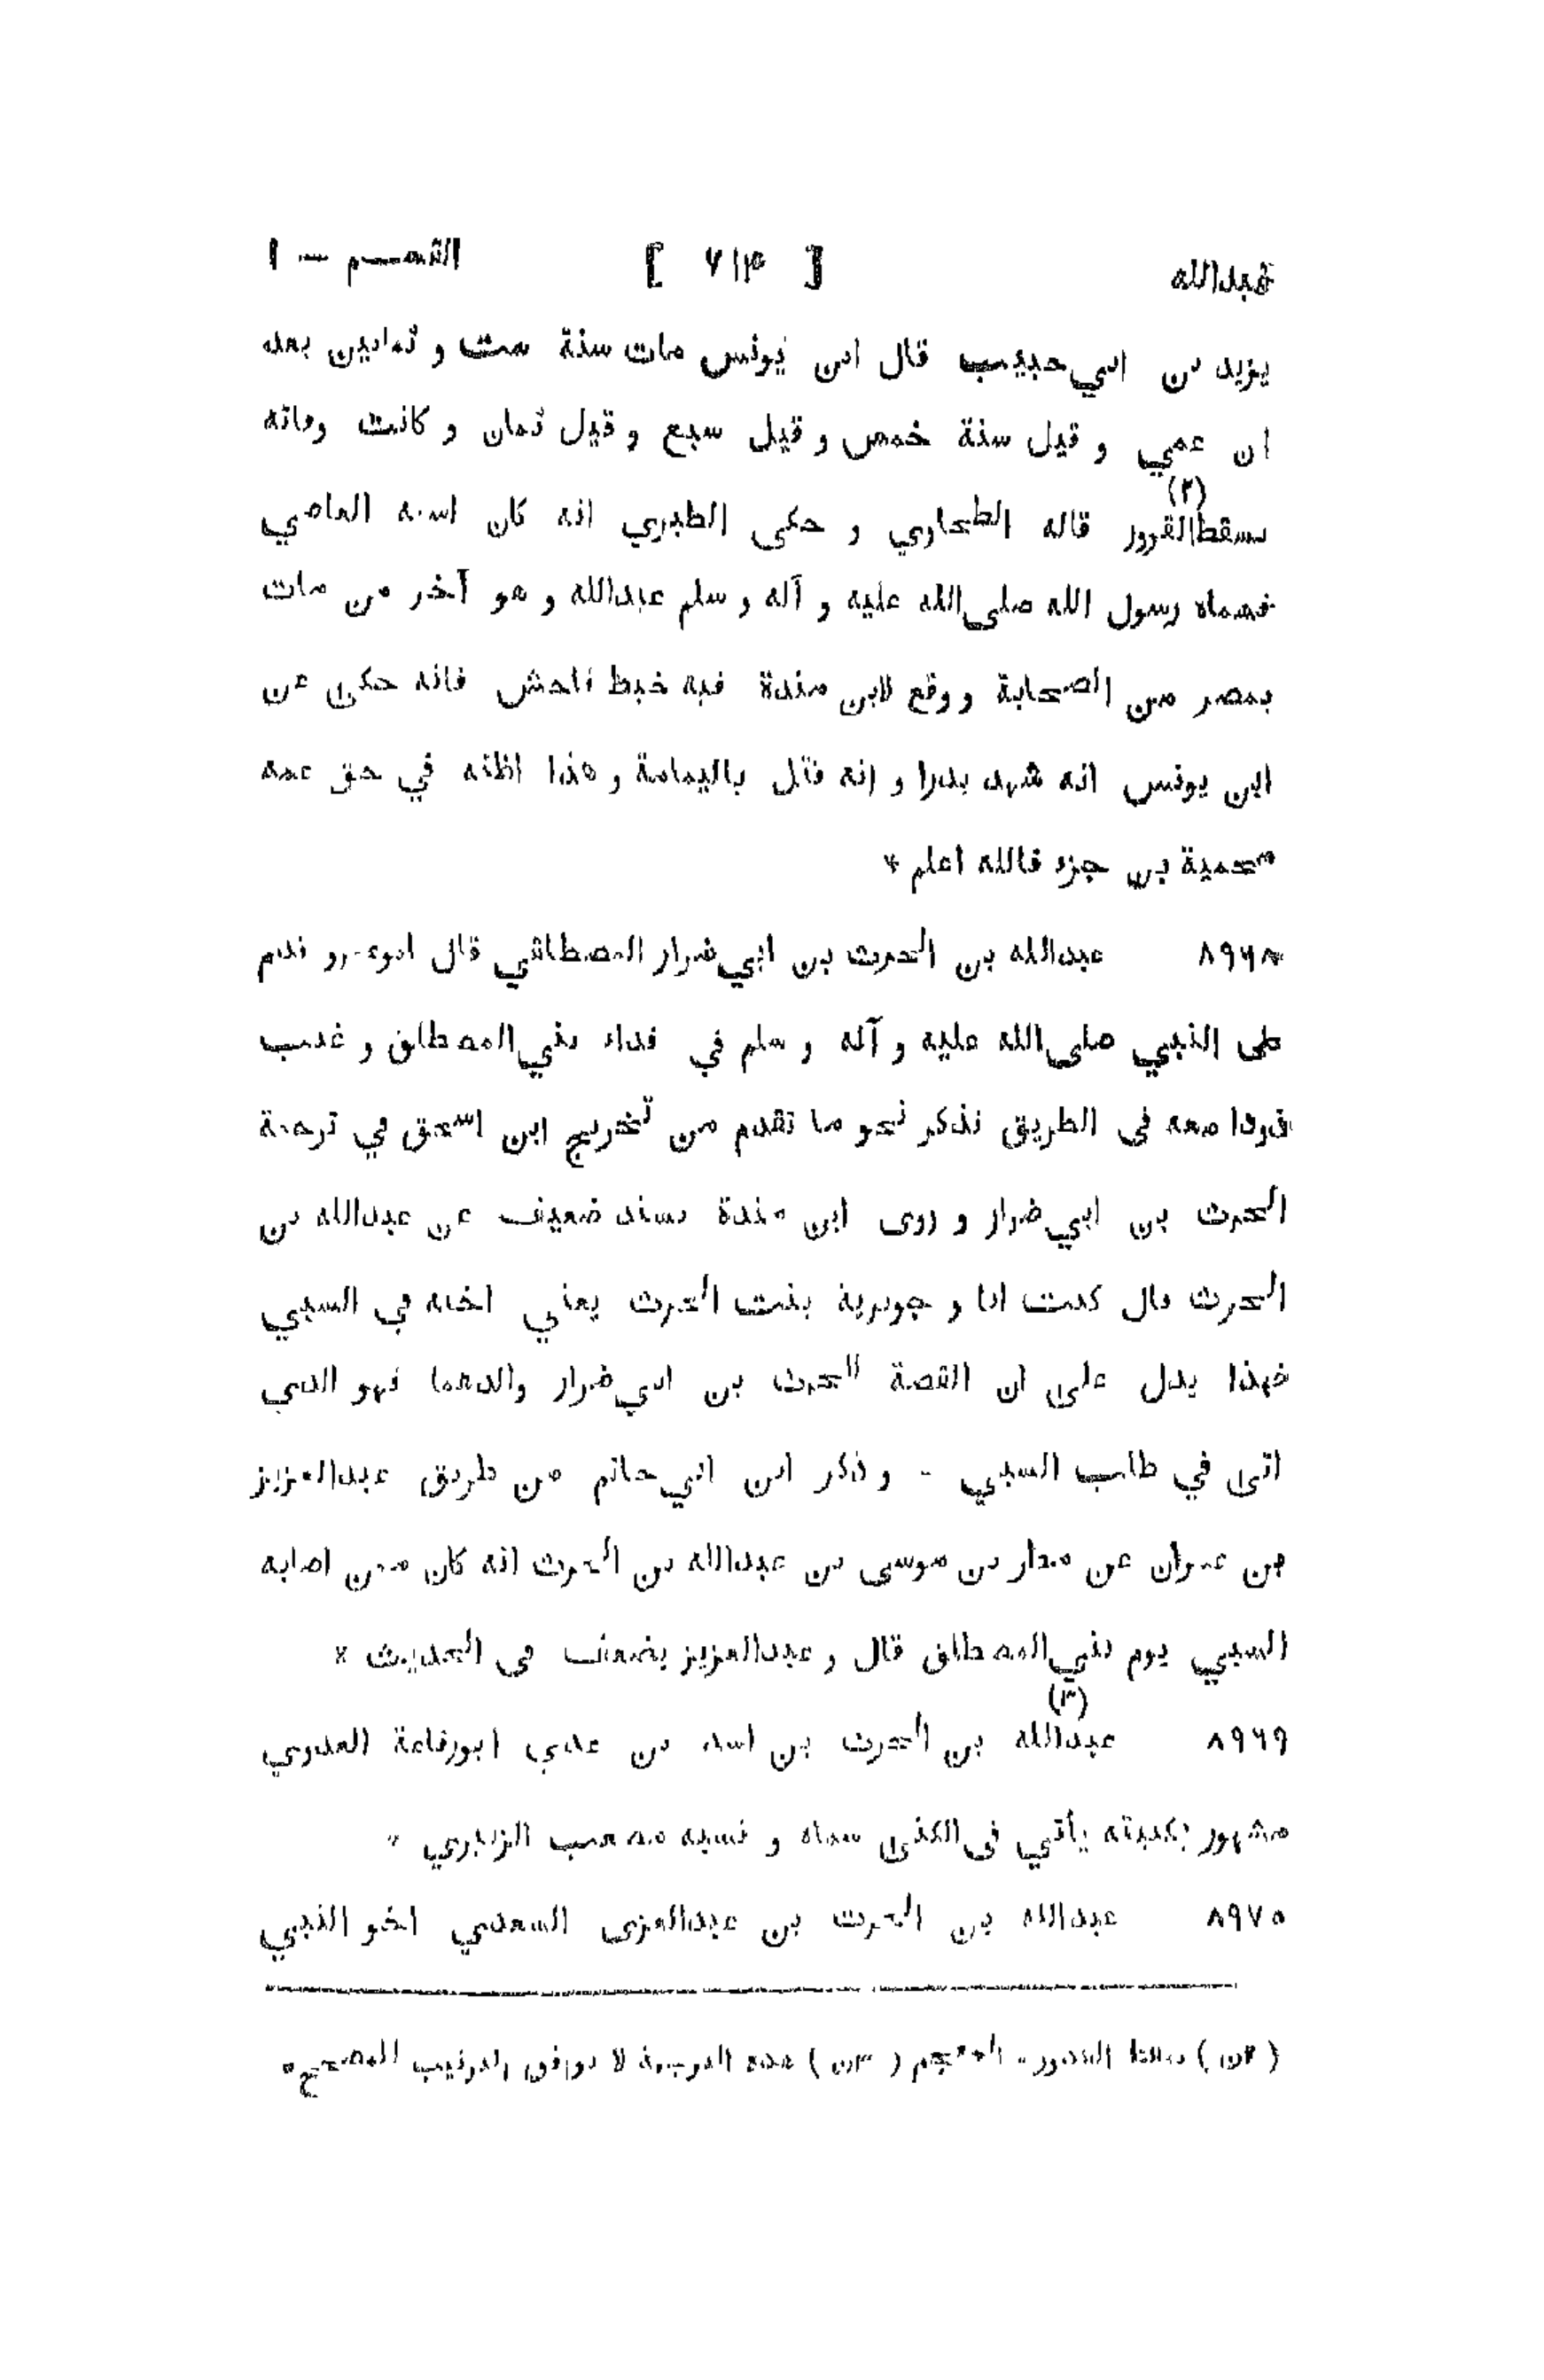 عبدالله [ ٧١٣ ] القسم — ١
يزيد بن ابي حبيب قال ابن يونس مات سنة ست و ثمانين بعد
ان عمي و قيل سنة خمس و قيل سبع و قيل ثمان و كانت وفاته
(٢)
بسقط القرور قاله الطحاوي و حكى الطبري انه كان اسمه العاصي
فسماه رسول الله صلى الله عليه و آله و سلم عبدالله و هو آخر من مات
بمصر من الصحابة و وقع لابن مندة فيه خبط فاحش فانه حكى عن
ابن يونس انه شهد بدرا و انه قتل باليمامة و هذا اظنه في حق عمه
محمية بن جزء فالله اعلم *
٨٩٦٨ عبدالله بن الحرث بن ابي ضرار المصطلقي قال ابوعمرو قدم
على النبي صلى الله عليه و آله و سلم في فداء بني المصطلق و غيب
ذودا معه في الطريق فذكر نحو ما تقدم من تخريج ابن اسحق في ترجمة
الحرث بن ابي ضرار و روى ابن مندة بسند ضعيف عن عبدالله بن
الحرث قال كنت انا و جويرية بنت الحرث يعني اخته في السبي
فهذا يدل على ان القصة للحرث بن ابي ضرار والدهما فهو الذي
اتى في طلب السبي - و ذكر ابن ابي حاتم من طريق عبدالعزيز
بن عمران عن بن موسى بن عبدالله بن الحرث انه كان ممن اصابه
السبي يوم بني المصطلق قال و عبدالعزيز يضعف في الحديث *
(٣)
٨٩٦٩ عبدالله بن الحرث بن اسد بن عدي ابورفاعة العدوي
مشهور بكنيته يأتي في الكنى سماه و نسبه مصعب الزبيري *
٨٩٧٠ عبدالله بن الحرث بن عبدالعزى السعدي اخو النبي
(٢ن) القدور - المعجم (٣ن) هذه الترجمة لا توافق الترتيب الصحيح *